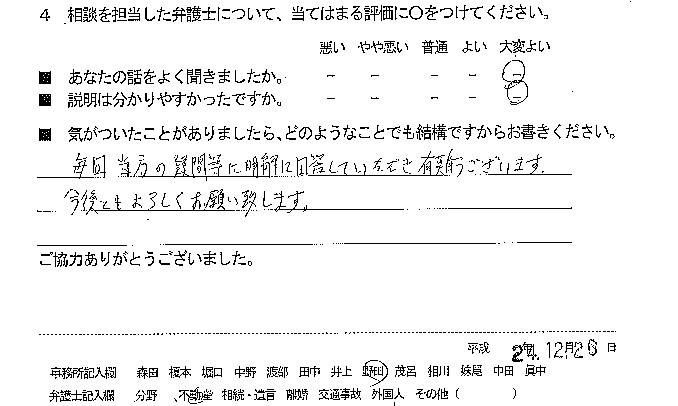 4 相談を担当した弁護士について、当てはまる評価に〇をつけてください。
悪い やや悪い 普通 よい 大変よい
■ あなたの話をよく聞きましたか。 － － － － －
■ 説明は分かりやすかったですか。 － － － － －
■ 気がついたことがありましたら、どのようなことでも結構ですからお書きください。
毎回 当方の疑問等に明解に回答していただき 有難うございます。
今後ともよろしくお願い致します。
ご協力ありがとうございました。
平成 24年 12月 26日
事務所記入欄 森田 榎本 堀口 中野 渡部 田中 井上 野田 茂呂 相川 妹尾 中田 眞中
弁護士記入欄 分野 不動産 相続・遺言 離婚 交通事故 外国人 その他（ ）